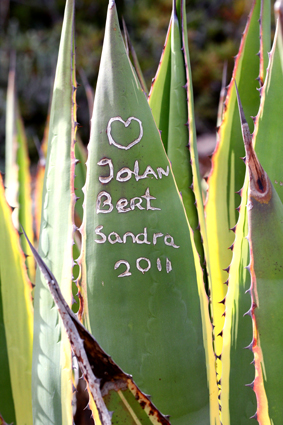 Johan
Bert
Sandra
2011